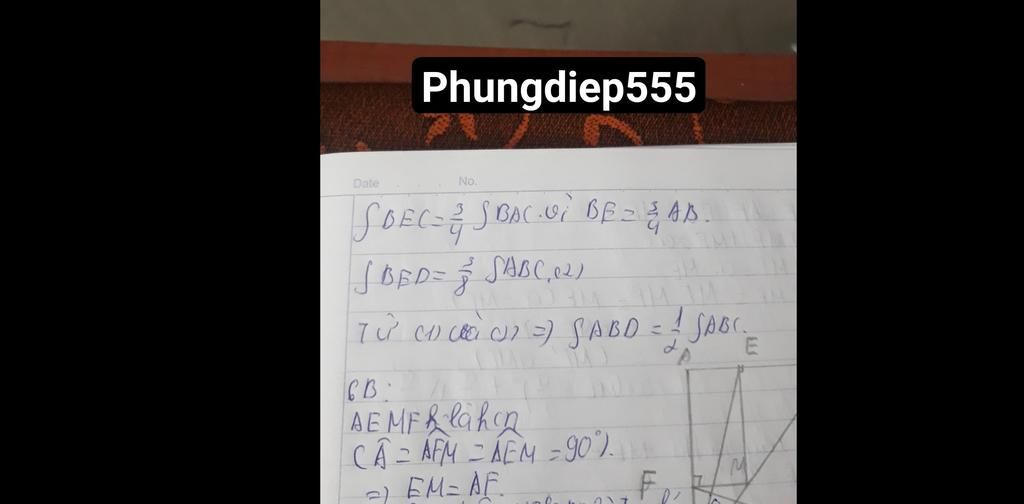 Phungdiep555
Date No.
SBEC = 3/4 SBAC. vì BE = 3/4 AB.
SBED = 3/8 SABC. (2)
Từ (1) và (2) => SABD = 1/2 SABC.
A E
6B:
AEMF là hcn
(Â = AFM = AEM = 90°).
=> EM = AF.
M
F